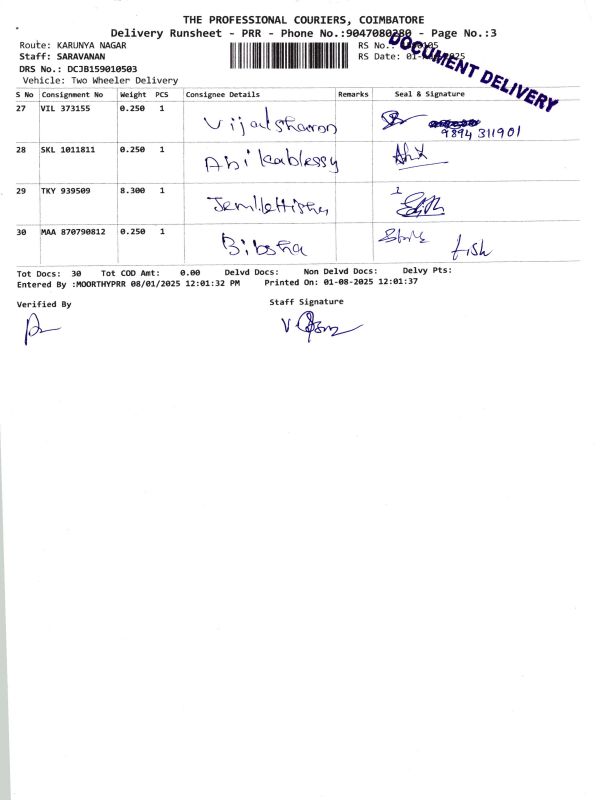 THE PROFESSIONAL COURIERS, COIMBATORE
Delivery Runsheet - PRR - Phone No.:9047080280 - Page No.:3
Route: KARUNYA NAGAR RS No.:
Staff: SARAVANAN RS Date: 01- 2025
DOCUMENT DELIVERY
DRS No.: DCJB159010503
Vehicle: Two Wheeler Delivery
S No Consignment No Weight PCS Consignee Details Remarks Seal & Signature
27 VIL 373155 0.250 1 Vijailsharon
9894 311901
28 SKL 1011811 0.250 1 Abikablessy
29 TKY 939509 8.300 1
30 MAA 870790812 0.250 1 Bibsha
Tot Docs: 30 Tot COD Amt: 0.00 Delvd Docs: Non Delvd Docs: Delvy Pts:
Entered By :MOORTHYPRR 08/01/2025 12:01:32 PM Printed On: 01-08-2025 12:01:37
Verified By Staff Signature